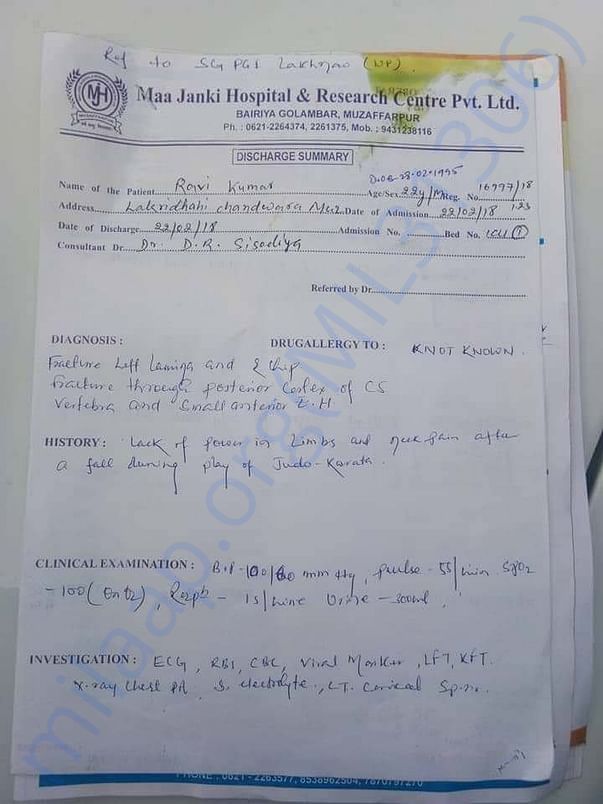 Ref to SG PGI Lakhnao (UP)
MJH
Maa Janki Hospital & Research Centre Pvt. Ltd.
BAIRIYA GOLAMBAR, MUZAFFARPUR
Ph. : 0621-2264374, 2261375, Mob. : 9431238116
DISCHARGE SUMMARY
D.O.B-28-02-1995
Name of the Patient Ravi Kumar Age/Sex 22y/M Reg. No. 16797/18
Address Lakridhahi chandwara Muz. Date of Admission 22/02/18 123
Date of Discharge 22/02/18 Admission No. Bed No. ICU
Consultant Dr. Dr. D.R. Sisodiya
Referred by Dr.
DIAGNOSIS : DRUGALLERGY TO : KNOT KNOWN.
Fracture Left Lamina and & chip
fracture through posterior Cortex of C5
Vertebra and Small anterior E.H
HISTORY : Lack of power in Limbs and neck pain after
a fall during play of Judo-Karata.
CLINICAL EXAMINATION : B.P-100/60 mm Hg, pulse-55/min SpO2
-100 , - 15/ Urine - 300ml,
INVESTIGATION : ECG, RBS, CBC, Viral Marker, LFT, KFT.
X-ray Chest PA, S. electrolyte., CT. Cervical Spine.
PHONE : 0621 - 2263577, 8538962504, 7870797270
milaap.org(MIL_3_306)